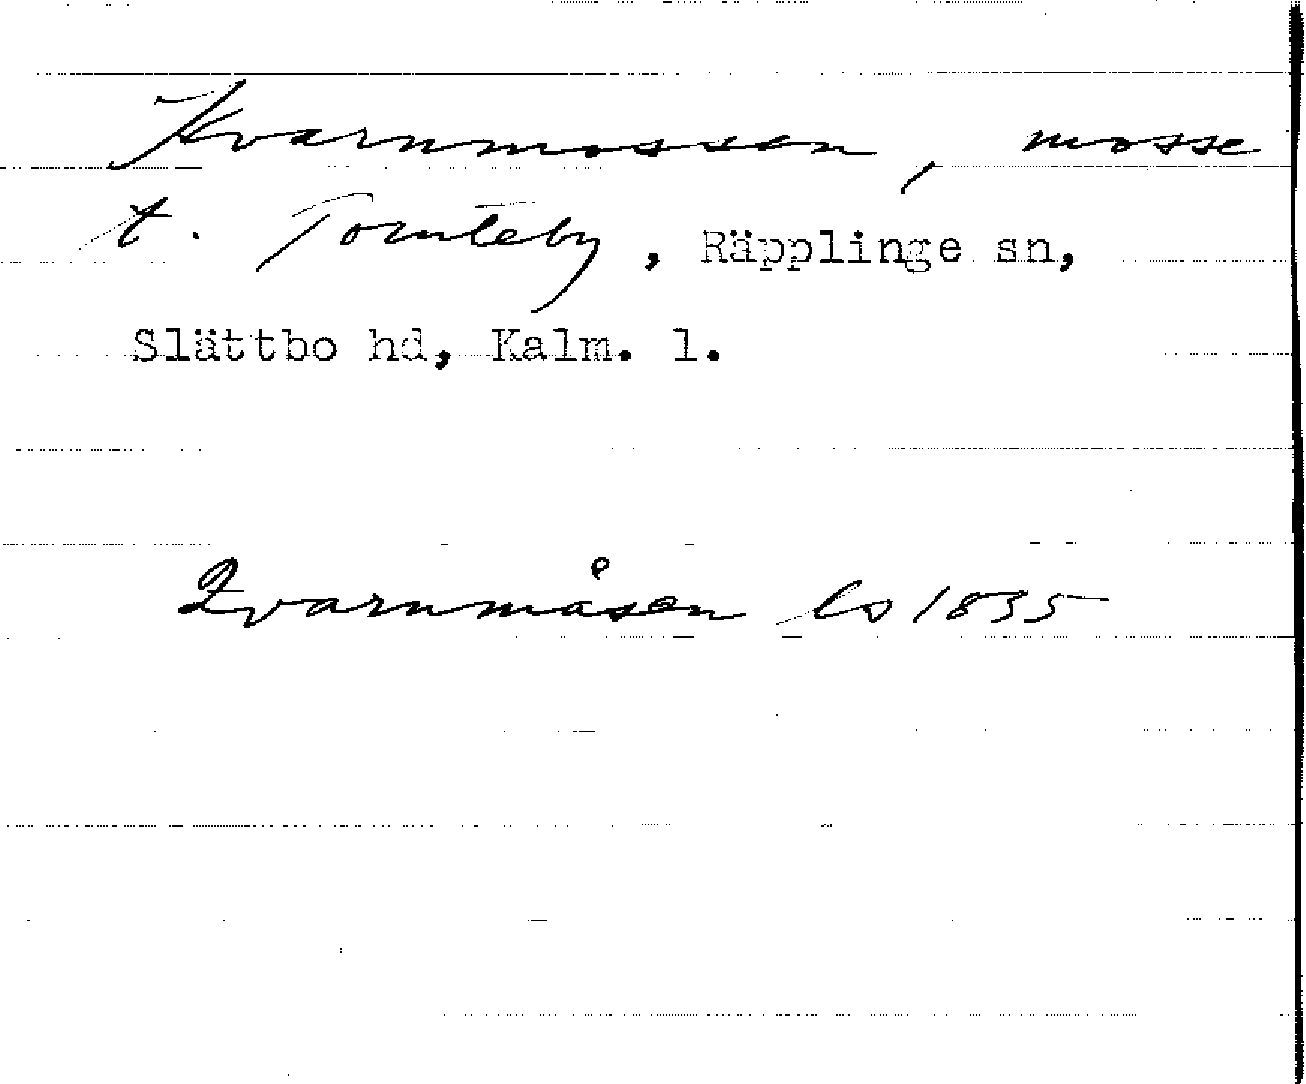 Kvarnmossen, mosse
t. Tornteby, Räpplinge sn,
Slättbo hd, Kalm. l.
Qvarnmåsen ls 1835